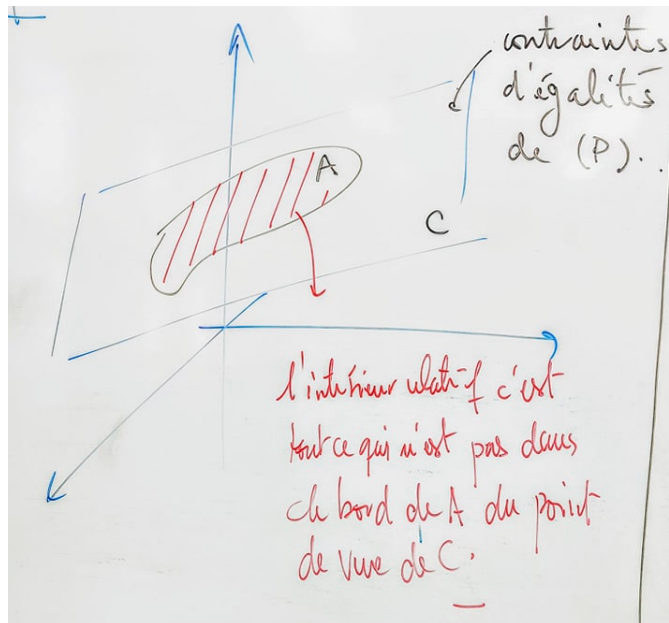 contraintes
d'égalités
de (P).
A
C
l'intérieur relatif c'est
tout ce qui n'est pas dans
le bord de A du point
de vue de C.